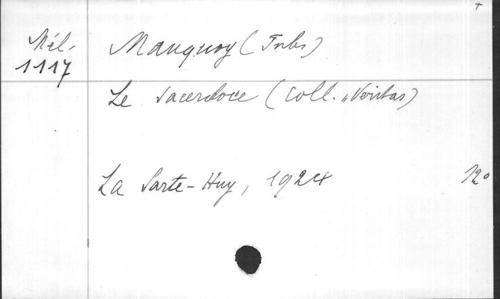 Mél. Mauquoy (Jules)
1117
Le Sacerdoce (coll. "Veritas)
La Sarte-Huy, 1924 12°